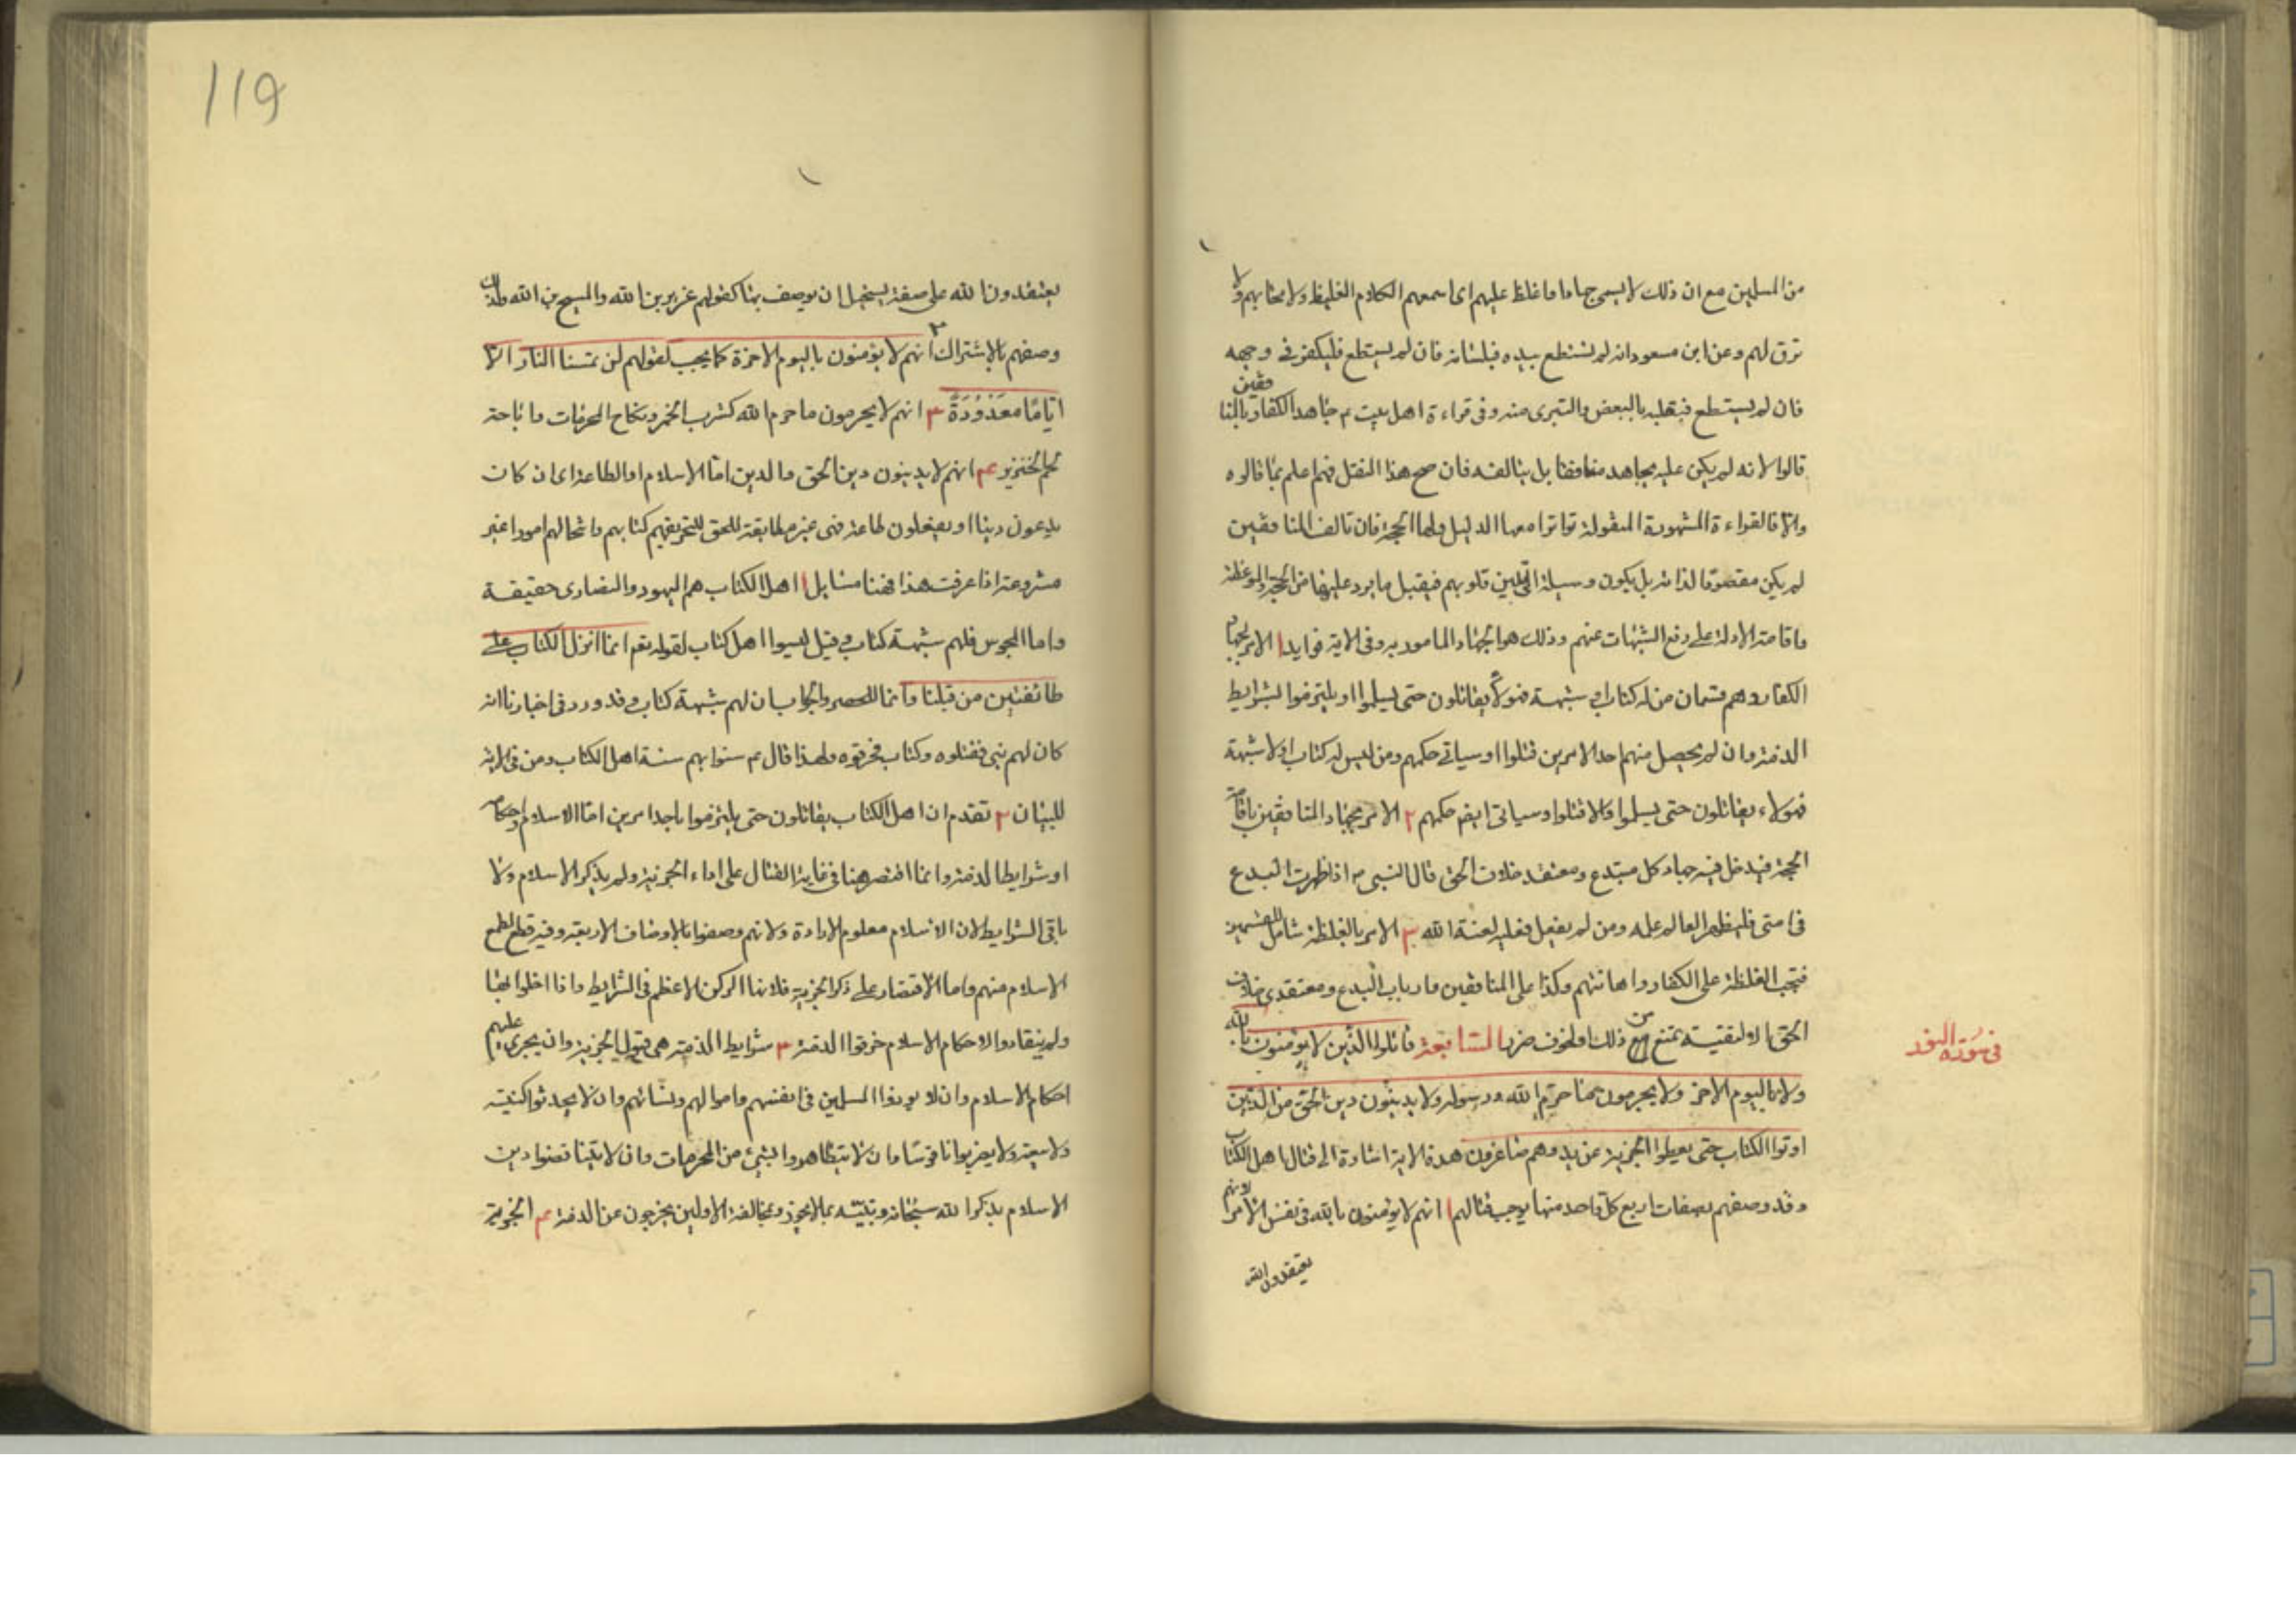 من المسلمين مع ان ذلك لا يسمى جهادا واغلظ عليهم اى اسمعهم الكلام الغليظ ولا تحابهم ولا
ترق لهم وعن ابن مسعود ان لم تستطع بيده فبلسانه فان لم يستطع فليكفر فى وجهه
فان لم يستطع فبقلبه بالبغض والتبرى منه وفى قراءة اهل بيت م جاهد الكفار بالمنافقين
قالوا لانه لم يكن عليه مجاهد منافقا بل يتالفه فان صح هذا النقل فهم اعلم بما قالوه
والا فالقراءة المشهورة المنقولة تواترا معها الدليل ولها الحجة فان تالف المنافقين
لم يكن مقصودا لذاته بل يكون وسيلة الى تليين قلوبهم فيقبل ما يرد عليها من الحجة والموعظة
واقامة الادلة على دفع الشبهات عنهم وذلك هو الجهاد المامور به وفى الاية فوايد ا الامر بجهاد
الكفار وهم قسمان من له كتاب او شبهة فهولاء يقاتلون حتى يسلموا او يلتزموا بشرايط
الذمة وان لم يحصل منهم احد الامرين قتلوا وسياتى حكمهم ومن ليس له كتاب ولا شبهة
فهولاء يقاتلون حتى يسلموا والا قتلوا وسياتى ايضا حكمهم ٢ الامر بجهاد المنافقين باقامة
الحجة فيدخل فيه جهاد كل مبتدع ومعتقد خلاف الحق قال النبى ص اذا ظهرت البدع
فى امتى فليظهر العالم علمه ومن لم يفعل فعليه لعنة الله ٣ الامر بالغلظة شامل للقسمين
فتجب الغلظة على الكفار واهانتهم وكذا على المنافقين وارباب البدع ومعتقدى خلاف
الحق الا لتقية تمنع من ذلك او لخوف ضرر السابعة قاتلوا الذين لا يؤمنون بالله
ولا باليوم الاخر ولا يحرمون ما حرم الله ورسوله ولا يدينون دين الحق من الذين
اوتوا الكتاب حتى يعطوا الجزية عن يد وهم صاغرون هذه الاية اشارة الى قتال اهل الكتاب
وقد وصفهم بصفات اربع كل واحد منها يوجب قتالهم ا انهم لا يؤمنون بالله فى نفس الامر لانهم
يعتقدون الله
فى سورة
119
يعتقدون الله على صفة يستحيل ان يوصف بها كقولهم عزير بن الله والمسيح بن الله ولذلك
وصفهم بالاشتراك ٢ انهم لا يؤمنون باليوم الاخرة كما يجب لقولهم لن تمسنا النار الا
اياما معدودة ٣ انهم لا يحرمون ما حرم الله كشرب الخمر ونكاح المحرمات واباحة
لحم الخنزير ٤ انهم لا يدينون دين الحق والدين اما الاسلام او الطاعة اى ان كانت
يدعون دينا او يفعلون طاعة فهى غير مطابقة للحق لتحريفهم كتابهم وانتحالهم امورا غير
مشروعة اذا عرفت هذا فهنا مسايل ا اهل الكتاب هم اليهود والنصارى حقيقة
واما المجوس فلهم شبهة كتاب وقيل ليسوا اهل كتاب لقوله تعم انما انزل الكتاب على
طائفتين من قبلنا وانما للحصر والجواب ان لهم شبهة كتاب وقد ورد فى اخبارنا انه
كان لهم نبى فقتلوه وكتاب فحرقوه ولهذا قال م سنوا بهم سنة اهل الكتاب ومن فى الاية
للبيان ٢ تقدم ان اهل الكتاب يقاتلون حتى يلتزموا باحد امرين اما الاسلام واحكامه
او شرايط الذمة وانما اقتصر هنا فى غاية القتال على اداء الجزية ولم يذكر الاسلام ولا
باقى الشرايط لان الاسلام معلوم الارادة ولانهم وصفوا بالاوصاف الاربعة وفيه قطع لطمع
الاسلام منهم واما الاقتصار على ذكر الجزية فلانها الركن الاعظم فى الشرايط واذا اخلوا بها
ولم ينقادوا لاحكام الاسلام خرقوا الذمة ٣ شرايط الذمة هى قبول الجزية وان يجرى عليهم
احكام الاسلام وان لا يوذوا المسلمين فى انفسهم واموالهم ونسائهم وان لا يحدثوا كنيسة
ولا بيعة ولا يضربوا ناقوسا وان لا يتظاهروا بشئ من المحرمات وان لا يتناقضوا دين
الاسلام بذكر الله سبحانه ونبيه بما لا يجوز وبمخالفة الاولين يخرجون عن الذمة ٤ الجزية